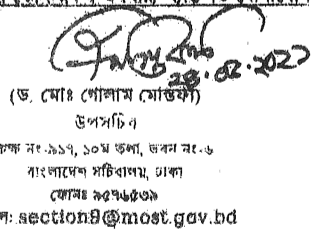 (ড. মোঃ গোলাম মোস্তফা)
উপসচিব
কক্ষ নং-৯১৭, ১০ম তলা, ভবন নং-৬
বাংলাদেশ সচিবালয়, ঢাকা
ফোনঃ ৯৫৭৬৫৩৯
section9@most.gov.bd